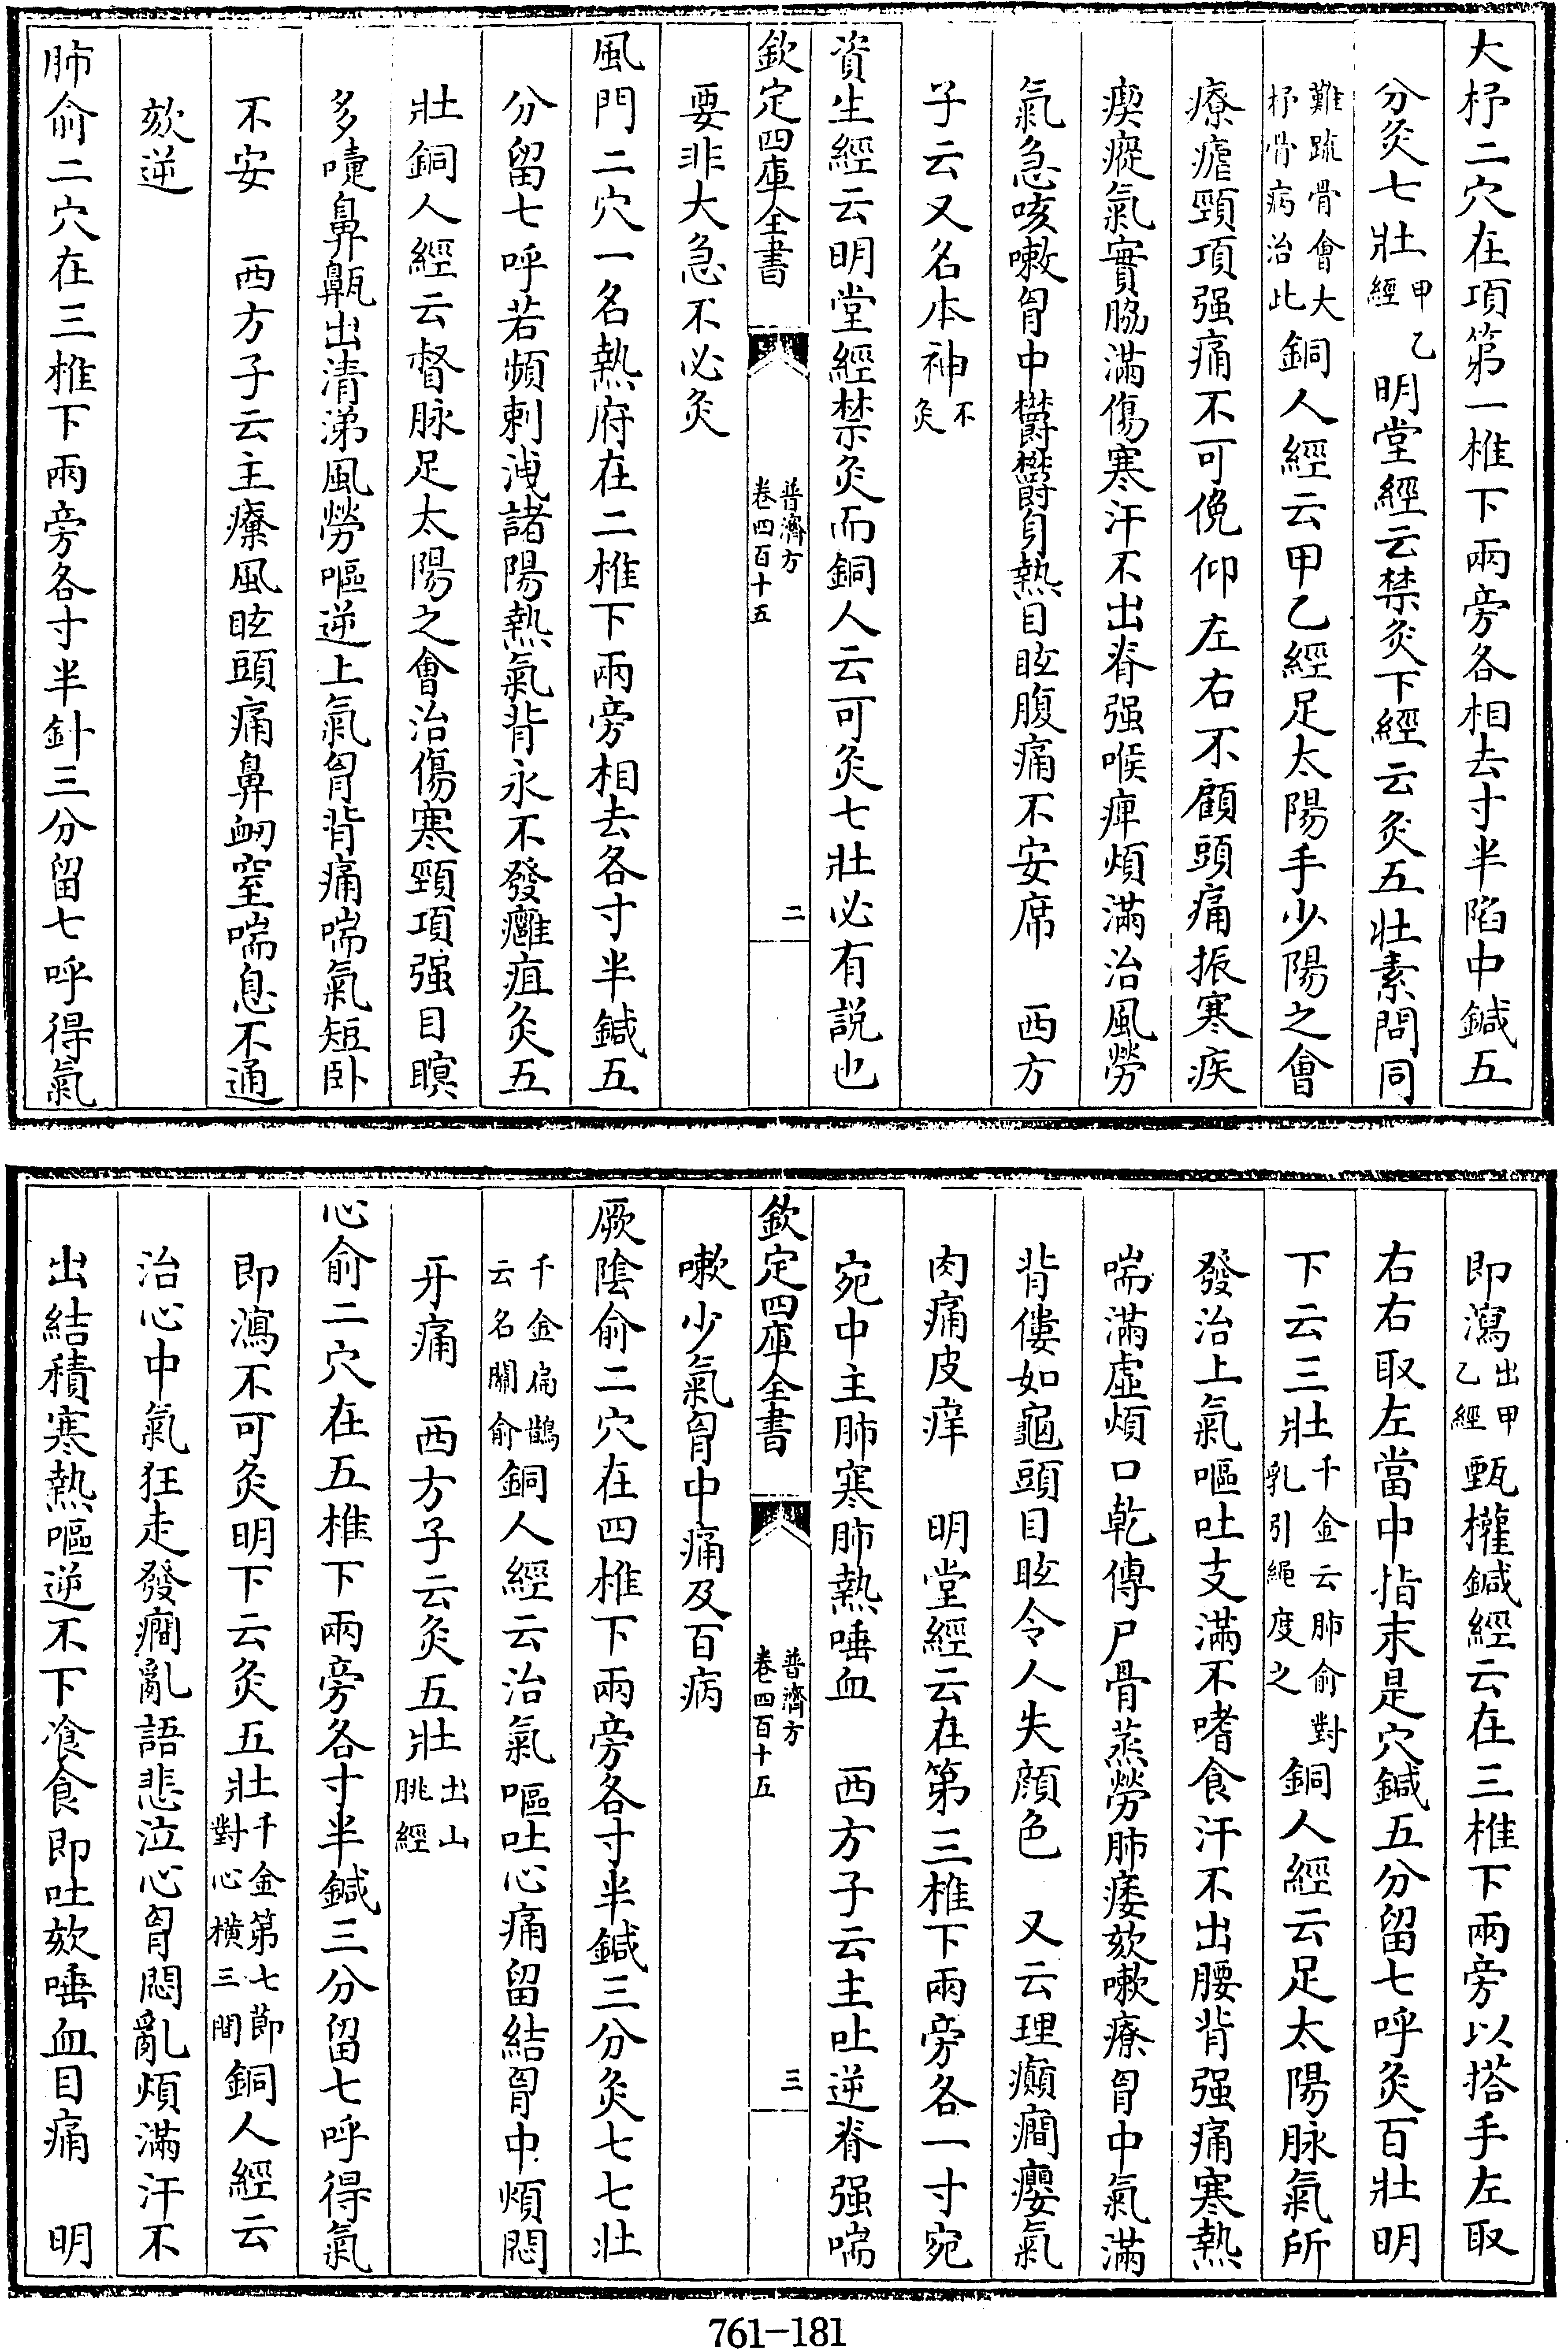 大杼二穴在項第一椎下兩旁各相去寸半陷中鍼五
分灸七壯甲乙經明堂經云禁灸下經云灸五壯素問同
難疏骨會大杼骨病治此銅人經云甲乙經足太陽手少陽之會
療瘧頸項强痛不可俛仰左右不顧頭痛振寒疾
瘈瘲氣實脇滿傷寒汗不出脊强喉痺煩滿治風勞
氣急咳嗽胷中欝欝身熱目眩腹痛不安席　西方
子云又名本神不灸
資生經云明堂經禁灸而銅人云可灸七壯必有説也
欽定四庫全書
普濟方
卷四百十五
二
要非大急不必灸
風門二穴一名熱府在二椎下兩旁相去各寸半鍼五
分留七呼若頻刺洩諸陽熱氣背永不發癰疽灸五
壯銅人經云督脉足太陽之會治傷寒頸項强目瞑
多嚏鼻鼽出清涕風勞嘔逆上氣胷背痛喘氣短卧
不安　西方子云主療風眩頭痛鼻衂窒喘息不通
欬逆
肺俞二穴在三椎下兩旁各寸半針三分留七呼得氣
即瀉出甲乙經甄權鍼經云在三椎下兩旁以搭手左取
右右取左當中指末是穴鍼五分留七呼灸百壯明
下云三壯千金云肺俞對乳引繩度之銅人經云足太陽脉氣所
發治上氣嘔吐支滿不嗜食汗不出腰背强痛寒熱
喘滿虚煩口乾傳尸骨蒸勞肺痿欬嗽療胷中氣滿
背僂如龜頭目眩令人失顔色　又云理癲癇癭氣
肉痛皮痒　明堂經云在第三椎下兩旁各一寸宛
宛中主肺寒肺熱唾血　西方子云主吐逆脊强喘
欽定四庫全書
普濟方
卷四百十五
三
嗽少氣胷中痛及百病
厥隂俞二穴在四椎下兩旁各寸半鍼三分灸七七壯
千金扁鵲云名關俞銅人經云治氣嘔吐心痛留結胷中煩悶
牙痛　西方子云灸五壯出山眺經
心俞二穴在五椎下兩旁各寸半鍼三分留七呼得氣
即瀉不可灸明下云灸五壯千金第七節對心横三間銅人經云
治心中氣狂走發癇亂語悲泣心胷悶亂煩滿汗不
出結積寒熱嘔逆不下飡食即吐欬唾血目痛　明
761-181